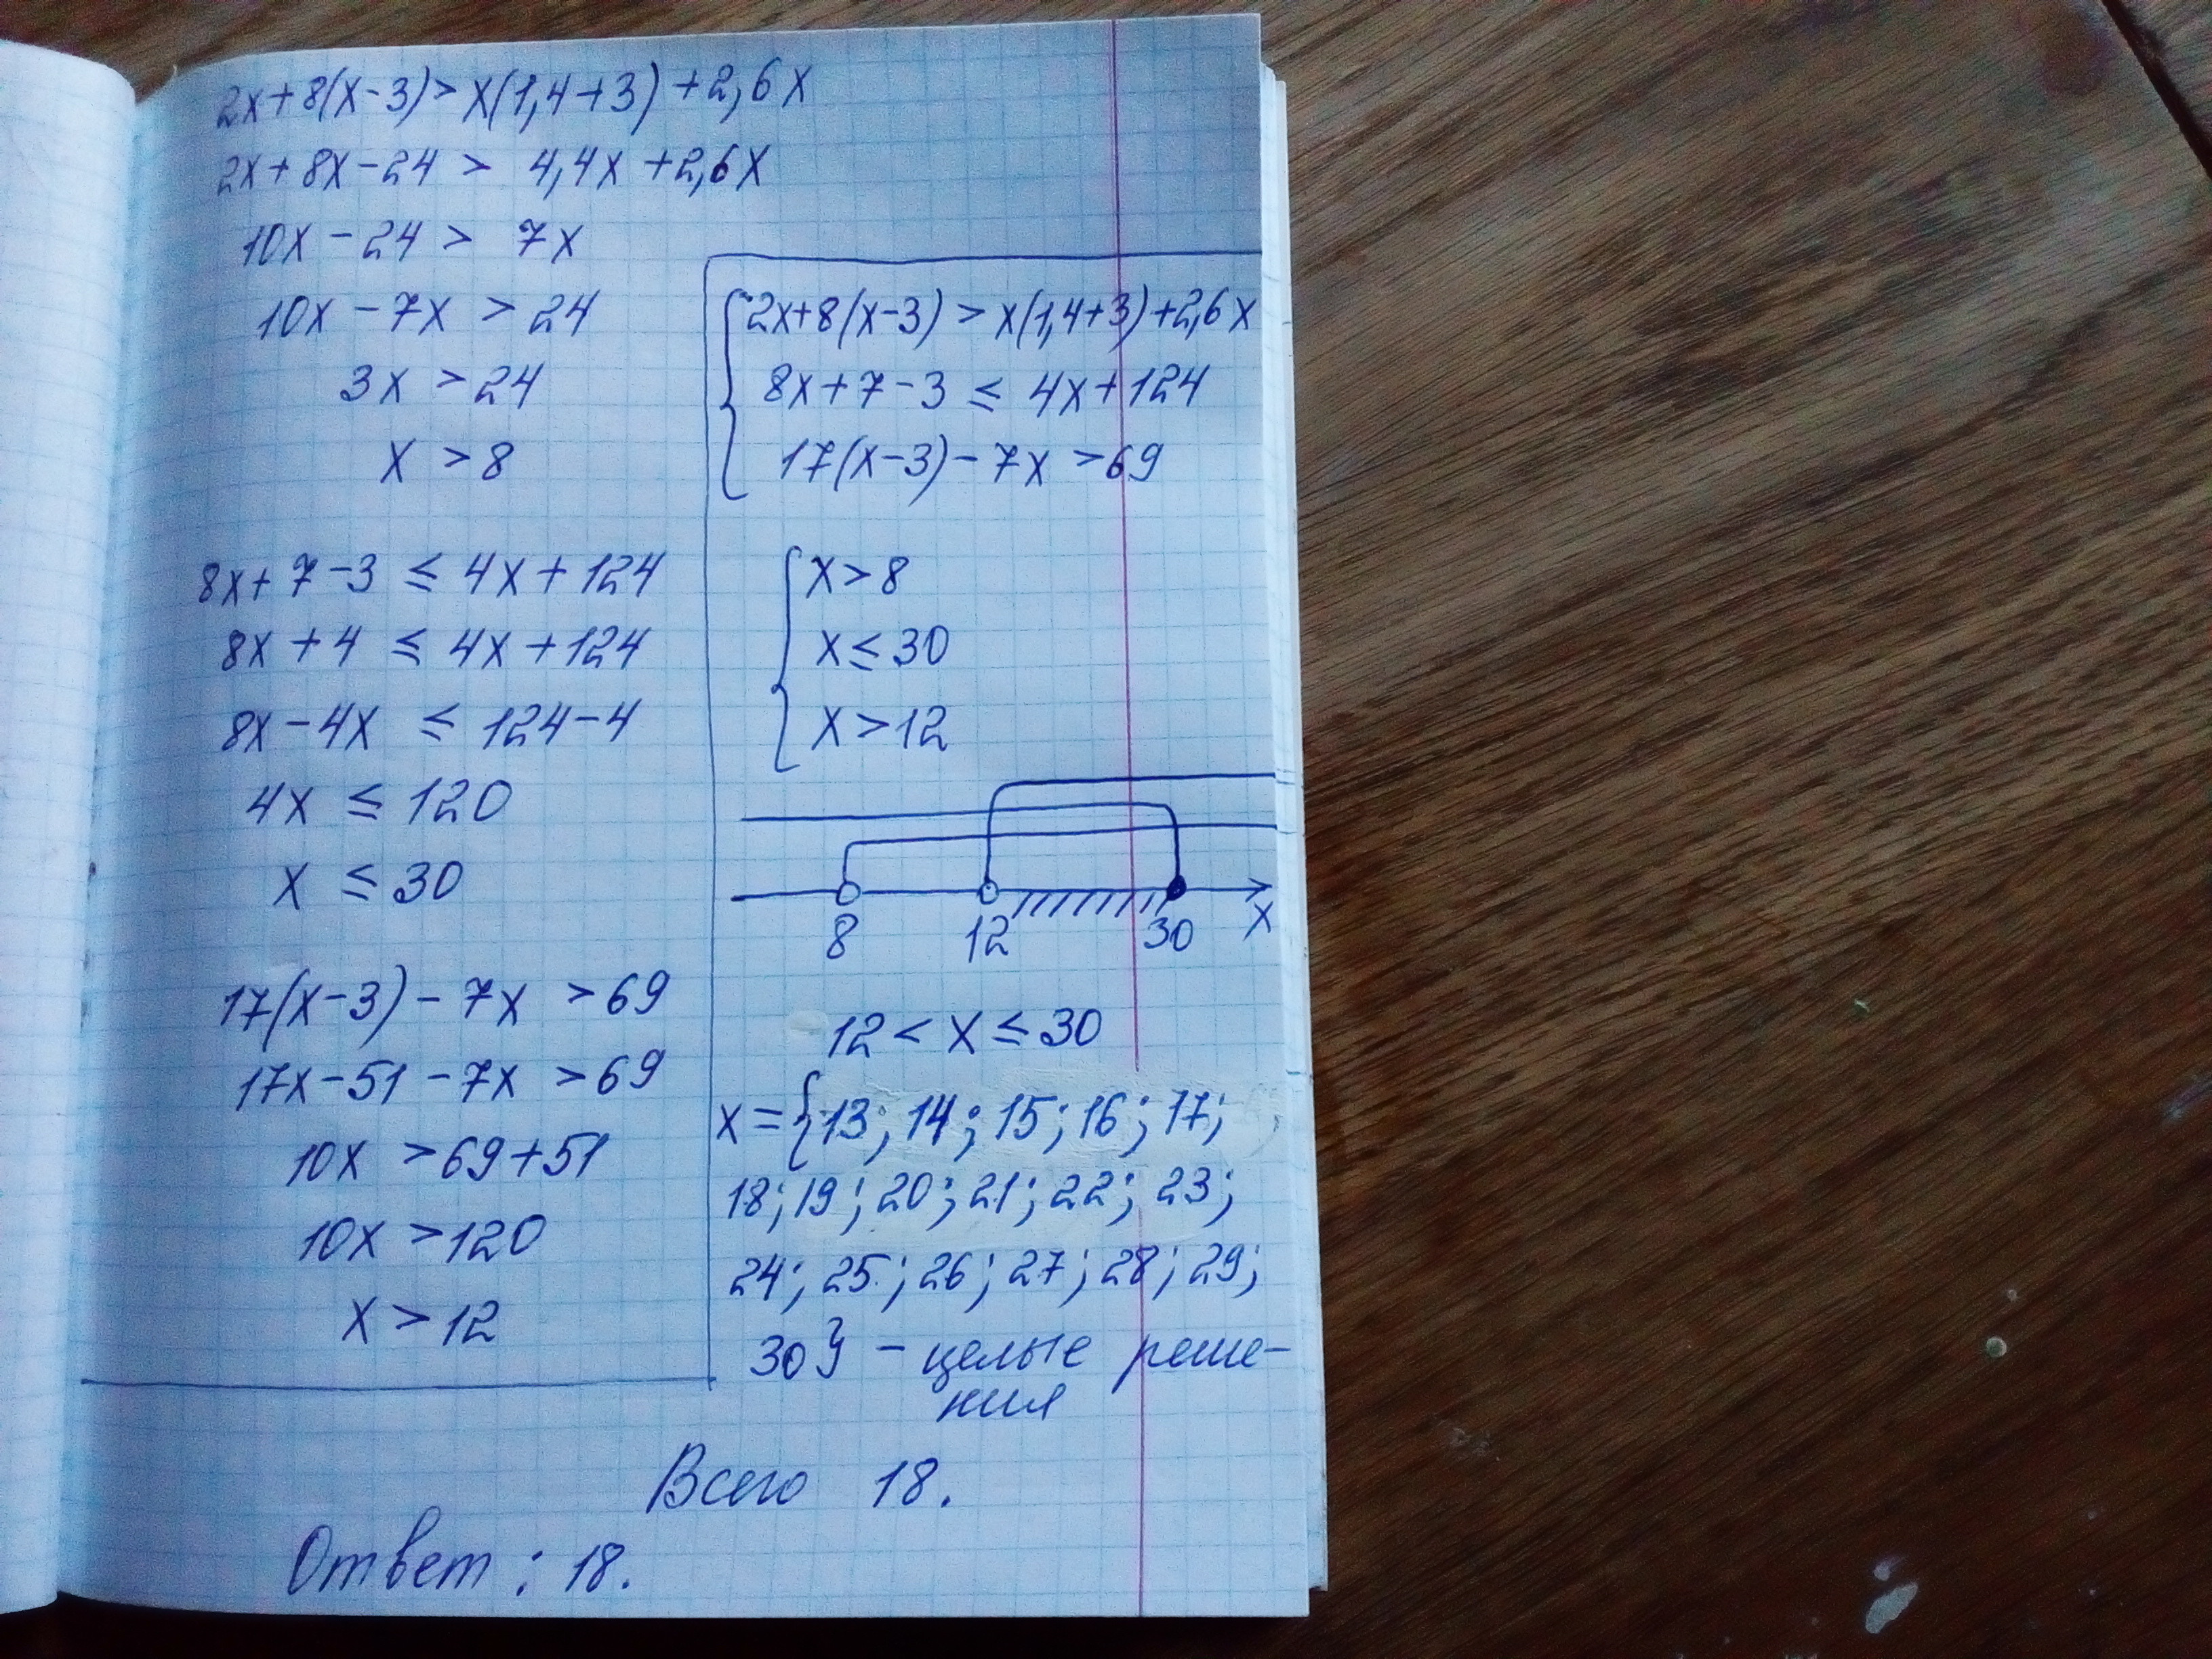 2x+8(x-3)>x(1,4+3)+2,6x
2x+8x-24 > 4,4x+2,6x
10x-24 > 7x
10x-7x > 24
3x > 24
x > 8
8x+7-3 ≤ 4x+124
8x+4 ≤ 4x+124
8x-4x ≤ 124-4
4x ≤ 120
x ≤ 30
17(x-3)-7x > 69
17x-51-7x > 69
10x > 69+51
10x > 120
x > 12
2x+8(x-3) > x(1,4+3)+2,6x
8x+7-3 ≤ 4x+124
17(x-3)-7x > 69
x > 8
x ≤ 30
x > 12
8 12 30 x
12 < x ≤ 30
x = {13; 14; 15; 16; 17;
18; 19; 20; 21; 22; 23;
24; 25; 26; 27; 28; 29;
30} - целые реше-
ния
Всего 18.
Ответ: 18.